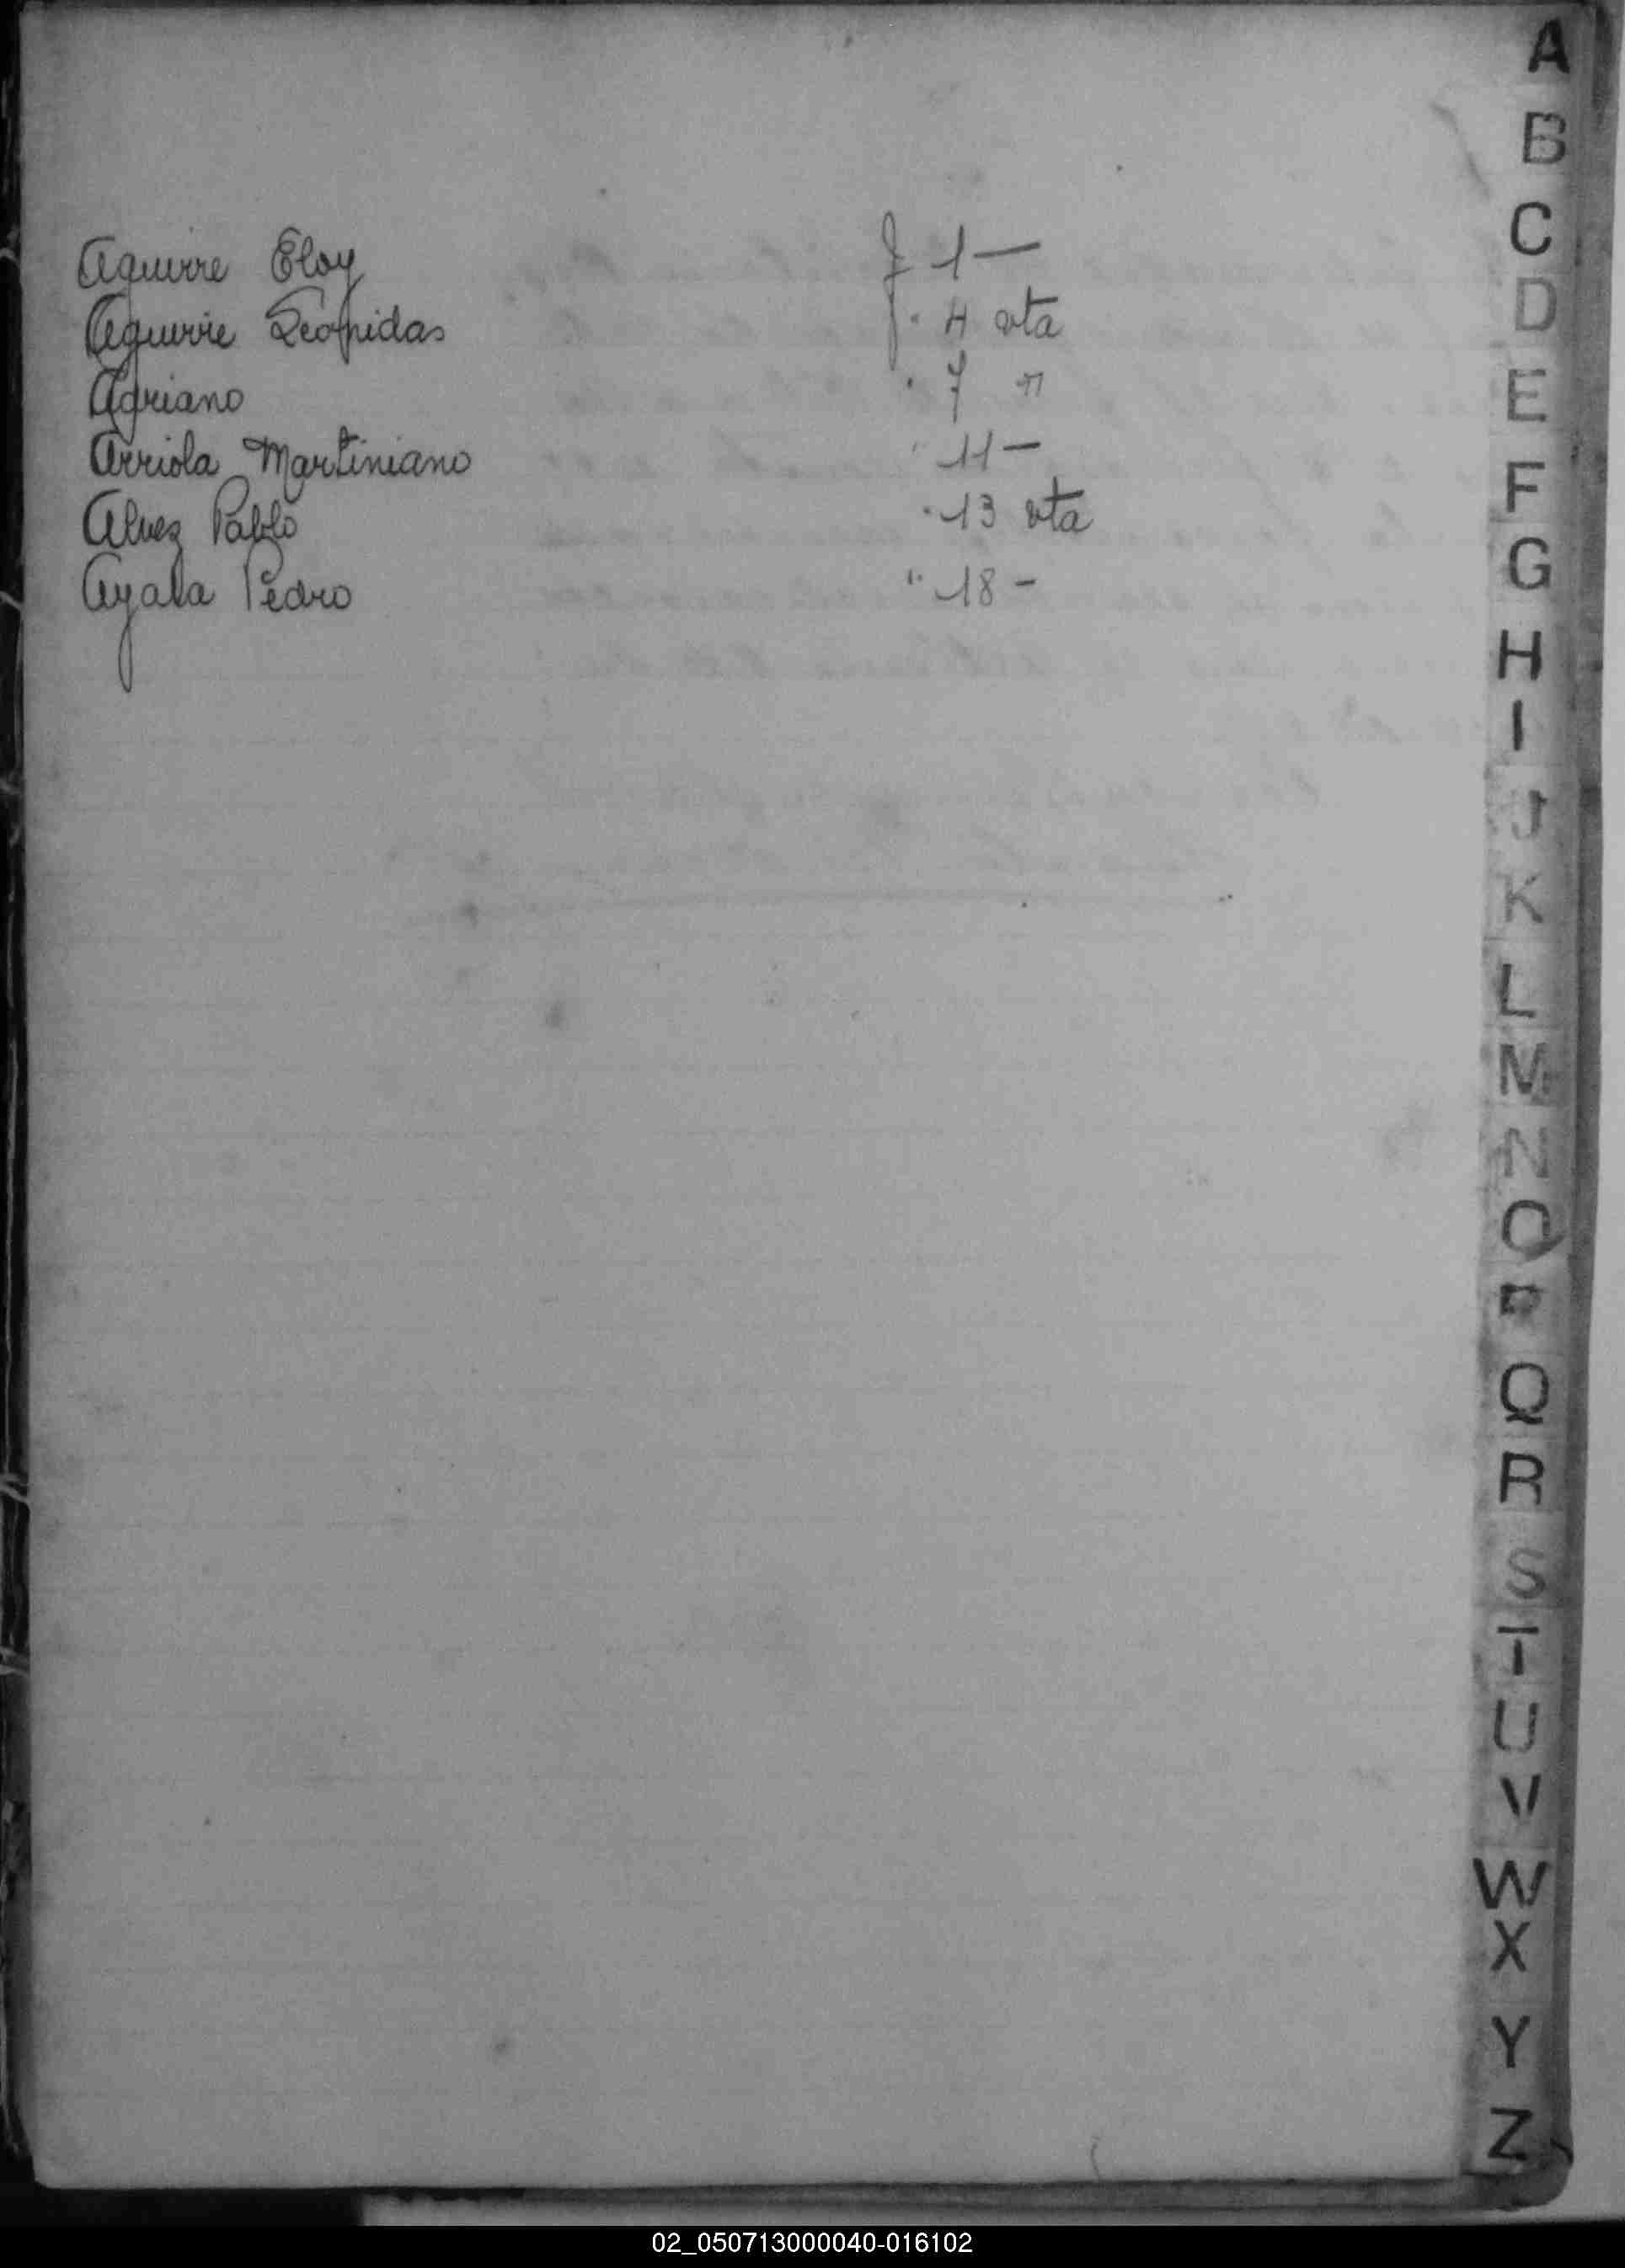 Aguirre Eloy f 1 —
Aguirre Leonidas f. 4 vta
Adriano . 7 "
Arriola Martiniano " 11 —
Alvez Pablo . 13 vta
Ayala Pedro " 18 -
A
B
C
D
E
F
G
H
I
J
K
L
M
N
O
P
Q
R
S
T
U
V
W
X
Y
Z
02_050713000040-016102